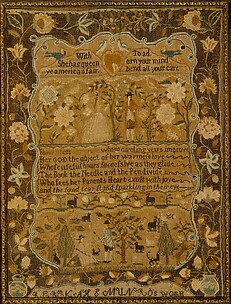 With To ad
Shebas queen orn your mind
ye american fair bend all your care
whose rising years improve
Her GOD the object of her warmest love
Whose useful hours successive as they glide
The Book the Needle and the Pen divide
Who sees her Parents Heart exult with joy
And the fond tear stand sparkling in their eye
WORK